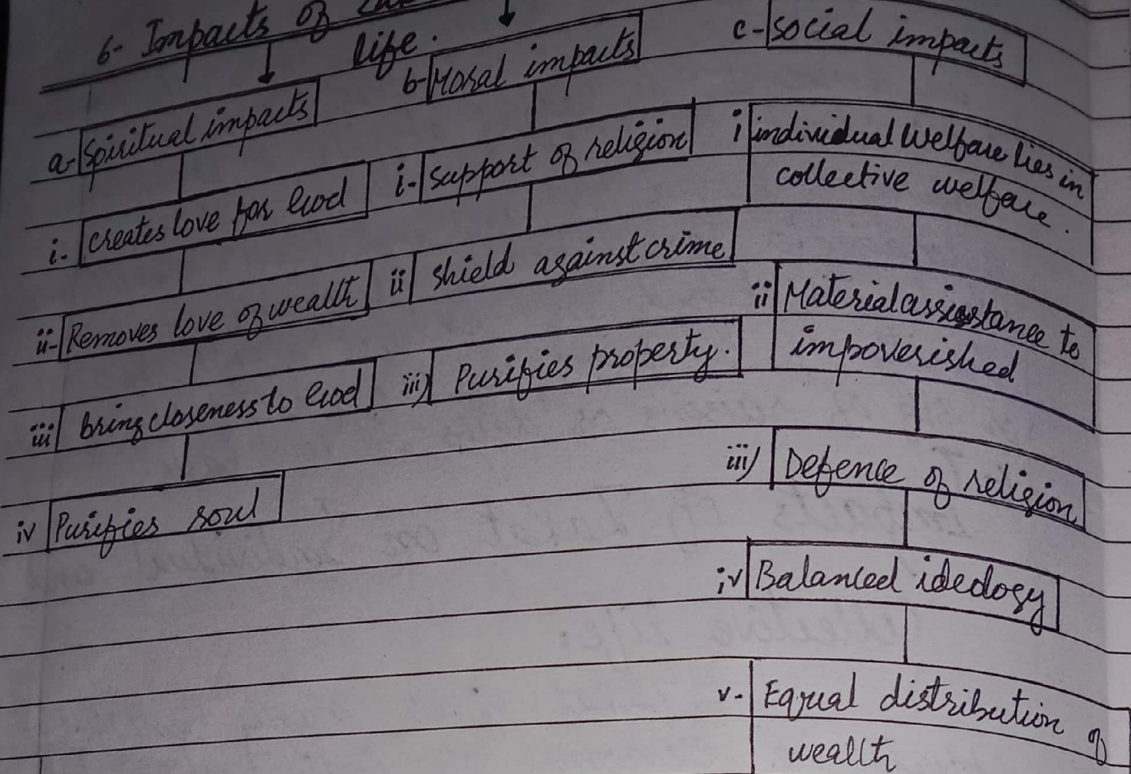 6- Impacts of
life.
a- Spiritual impacts
i- creates love for God
ii- Removes love of wealth
iii bring closeness to God
iv Purifies soul
b- Moral impacts
i- support of religion
ii shield against crime
iii) Purifies property.
c- social impacts
i individual welfare lies in
collective welfare.
ii Material assisstance to
impoverished
iii) Defence of religion
iv Balanced ideology
v- Equal distribution of
wealth